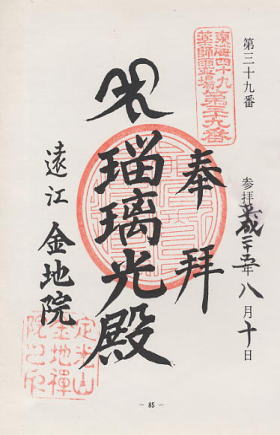 第三十九番
参拝平成二十五年八月十日
東海四十九
薬師霊場
第三十九番
奉拝
瑠璃光殿
遠江 金地院
定光山
金地禅
院之印
- 85 -